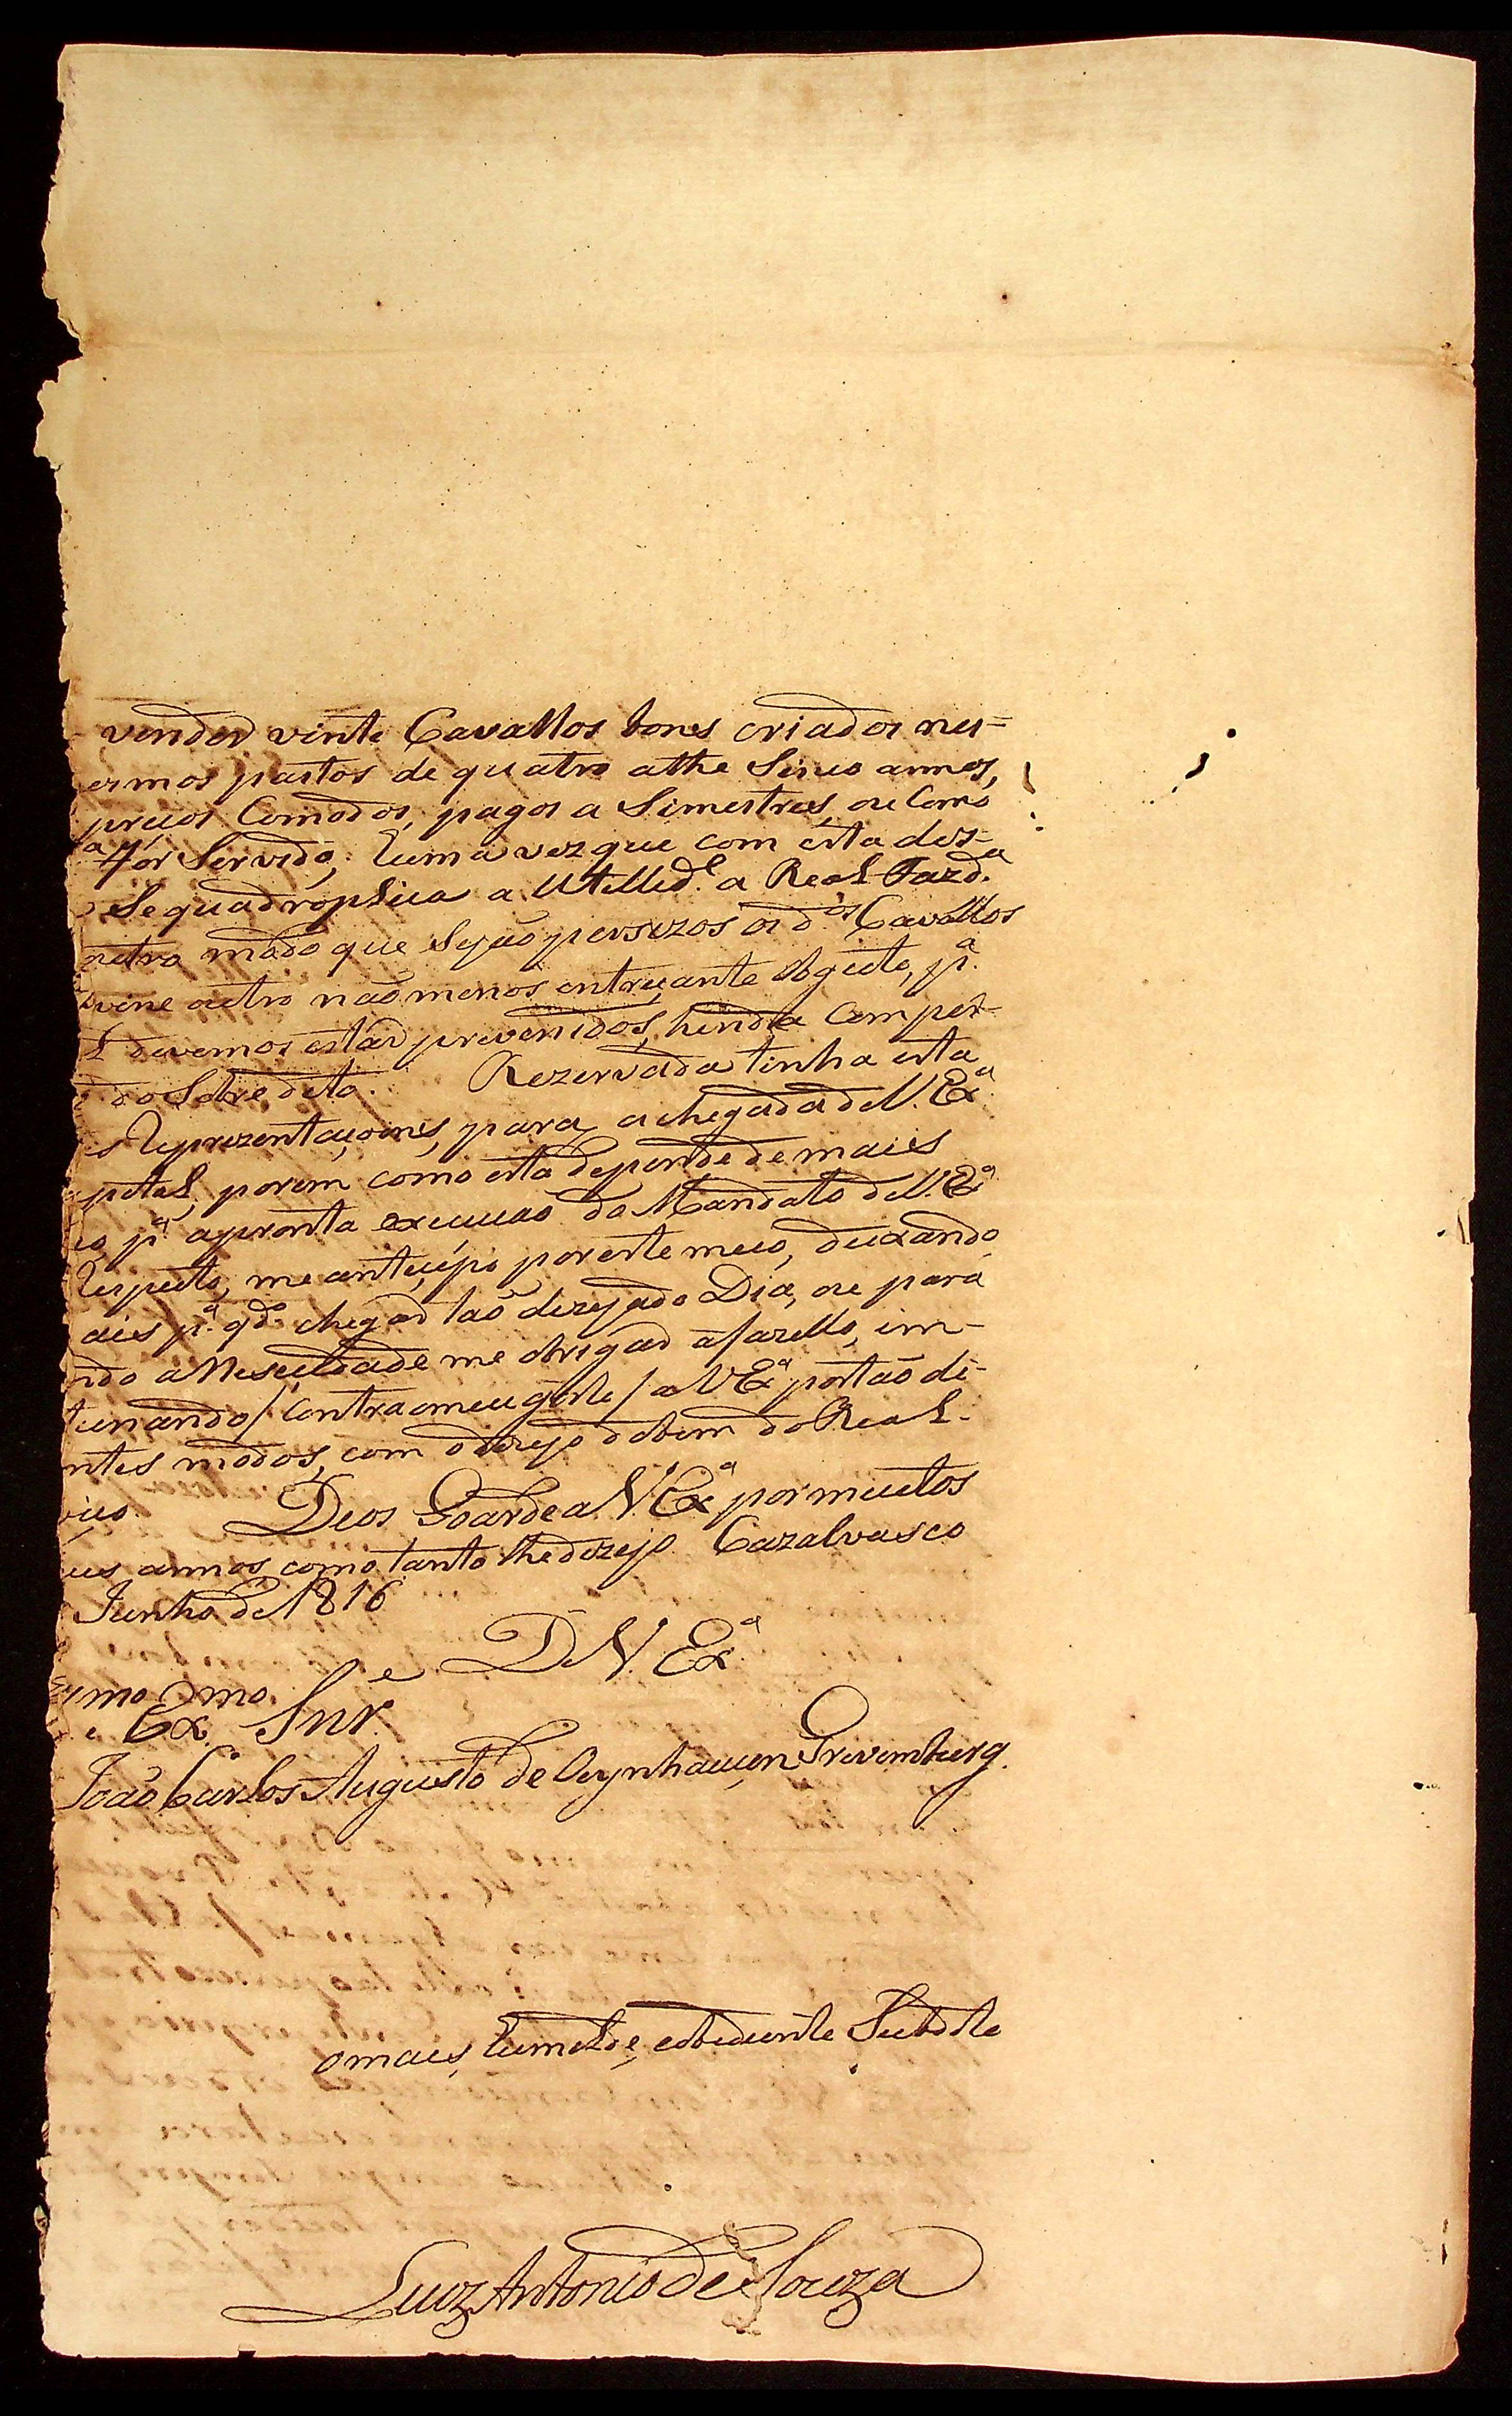 vender vinte Cavallos bons criados nes=
ermos pastos de quatro athe Sinco annos,
preços Comodos, pagos a Simestres, ou Como
a fôr Servido; huma vez que com esta des=
Se quadroplica a Utellid.e a Real Fazd.a
outro modo que Sejão persizos os d.os Cavallos
vine outro não menos entreçante Obgeto, p.a
l devemos estar prevenidos, hindo Com per-
do Sobredito. Rezervada tinha esta
Reprezentaçoens, para a chegada de V. Ex.a
pital, porem como esta depende de mais
p.a a pronta execucão do Mandato de V. Ex.a
Respeito, me antecipo por este meio, deixando
ais p.a q.do chegar tão dezejado Dia, ou para
ndo a Nesecidade me obrigar a fazello, im-
tunando / Contra o meu gosto / a V Ex.a por tão di-
ntes modos, com o dezejo do bem do Real-
viço. Deos Goarde a V. Ex.a por muitos
us annos, como tanto lhe dezejo. Cazalvasco
Junho de 1816
De V. Ex.a
mo e Ex.mo Snr.e
João Carlos Augusto de Oeynhausen Grevemburg.
o mais humilde, e obediente Subd.te
Luiz Antonio de Souza